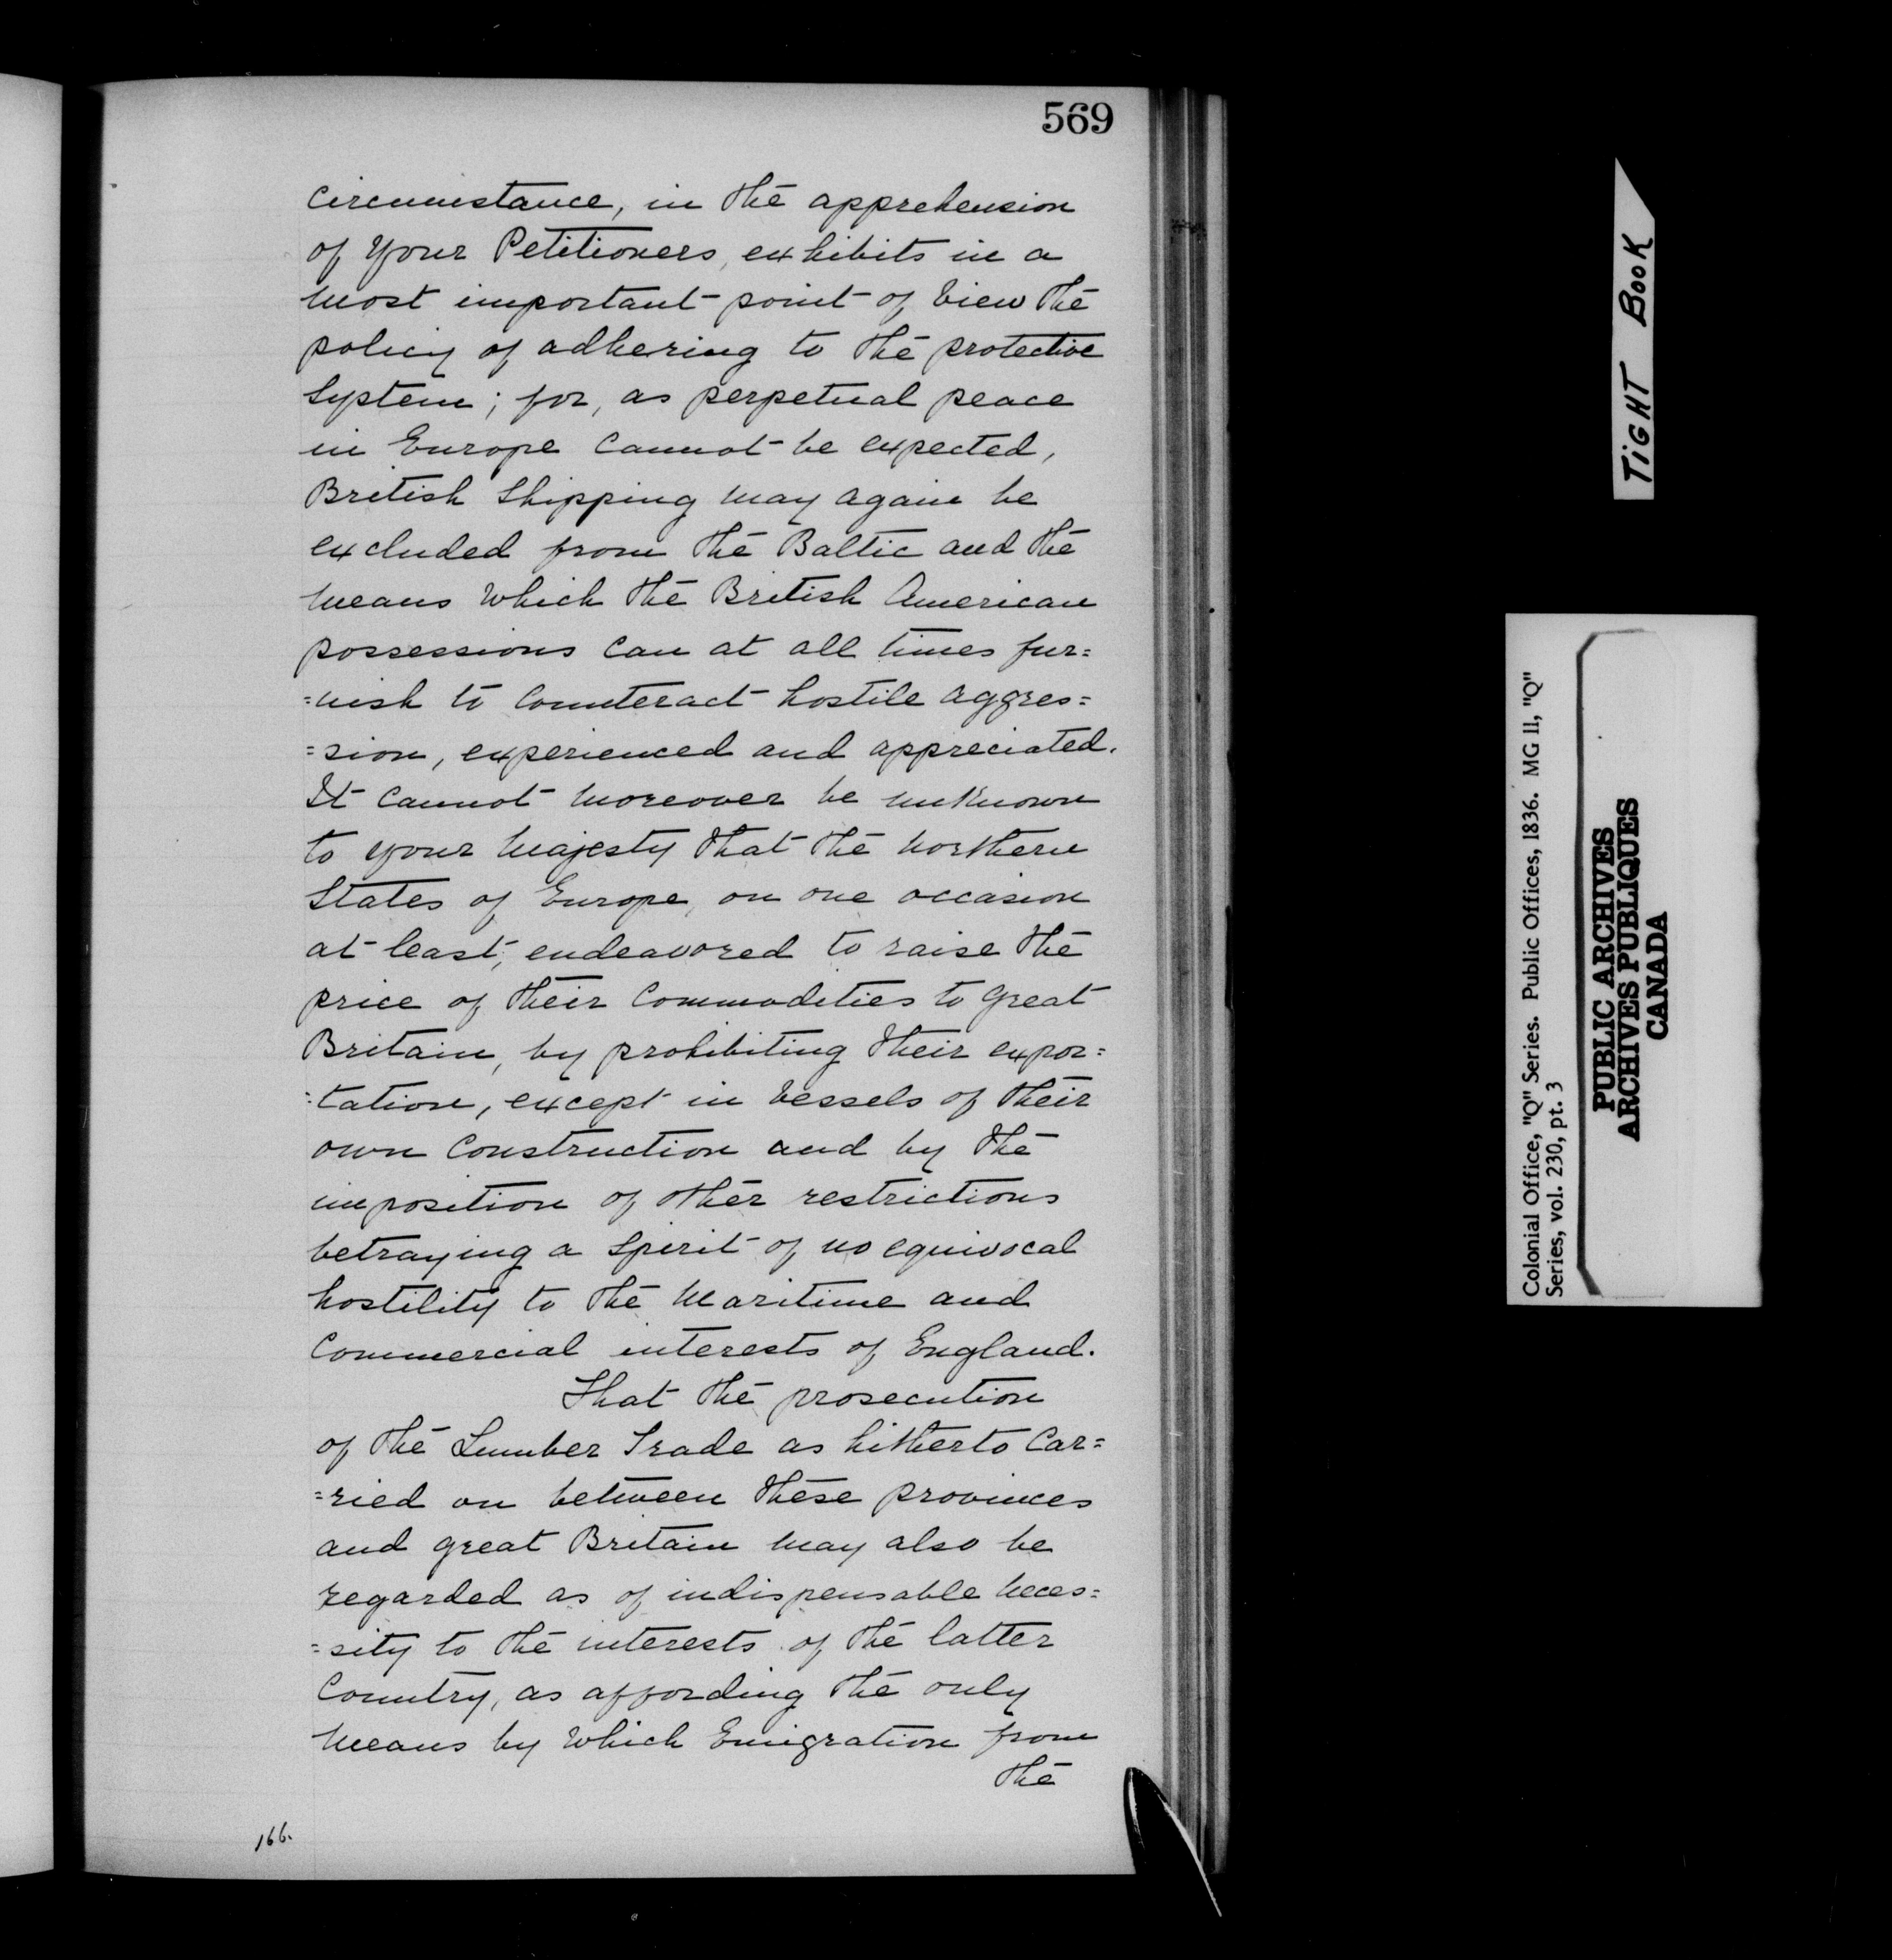 569
Circumstance, in the apprehension
of Your Petitioners, exhibits in a
most important point of view the
policy of adhering to the protective
System; for, as perpetual peace
in Europe cannot be expected,
British Shipping may again be
excluded from the Baltic and the
means which the British American
possessions can at all times fur=
=nish to counteract hostile aggres=
=sion, experienced and appreciated.
It cannot moreover be unknown
to your Majesty that the Northern
States of Europe, on one occasion
at least, endeavored to raise the
price of their Commodities to Great
Britain, by prohibiting their expor=
=tation, except in vessels of their
own Construction and by the
imposition of other restrictions
betraying a Spirit of no equivocal
hostility to the Maritime and
Commercial interests of England.
That the prosecution
of the Lumber Trade as hitherto Car=
=ried on between these provinces
and great Britain may also be
regarded as of indispensable neces=
=sity to the interests of the latter
Country, as affording the only
means by which Emigration from
the
166.
TIGHT BOOK
Colonial Office, "Q" Series. Public Offices, 1836. MG 11, "Q"
Series, vol. 230, pt. 3
PUBLIC ARCHIVES
ARCHIVES PUBLIQUES
CANADA